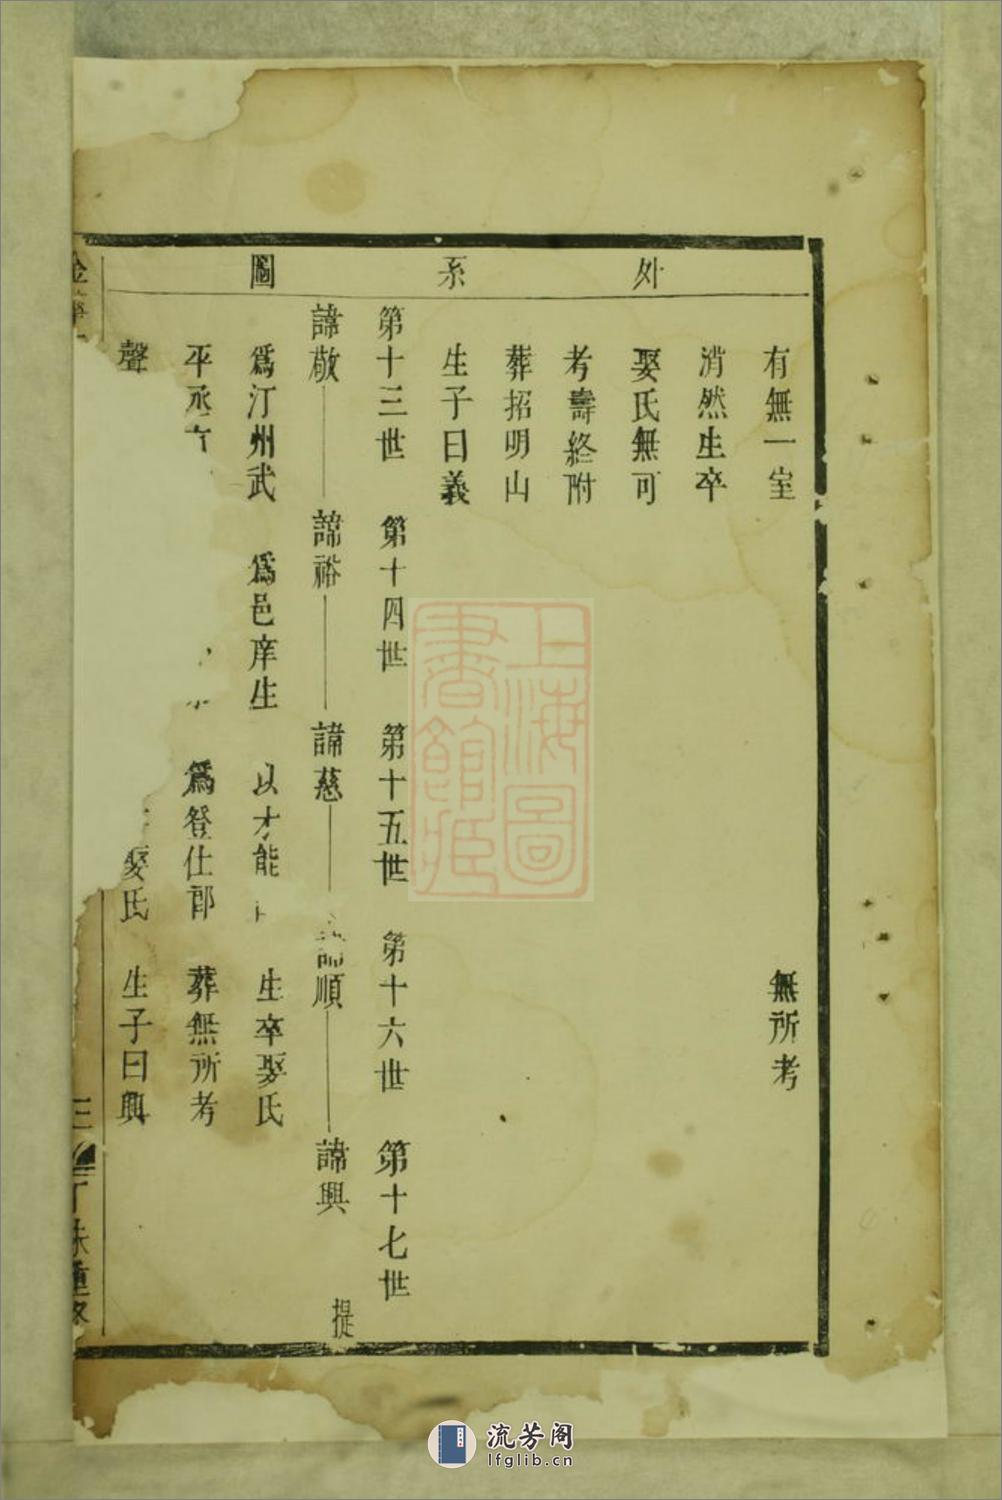 外系圖
有無一室
無所考
消然生卒
娶氏無可
考壽終附
葬招明山
生子曰義
第十三世 第十四世 第十五世 第十六世 第十七世
諱敬 諱裕 諱慈 諱順 諱興 提
爲汀州武 爲邑庠生 以才能 生卒娶氏
平丞 爲登仕郎 葬無所考
聲 娶氏 生子曰興
三 丁未重修
上海圖書館藏
流芳阁
lfglib.cn